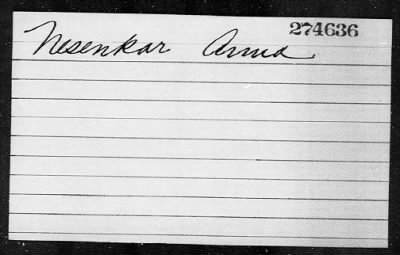 274636
Nesenkar Anna